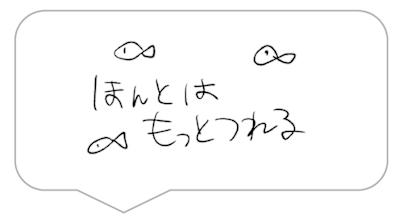 ほんとは
もっとつれる